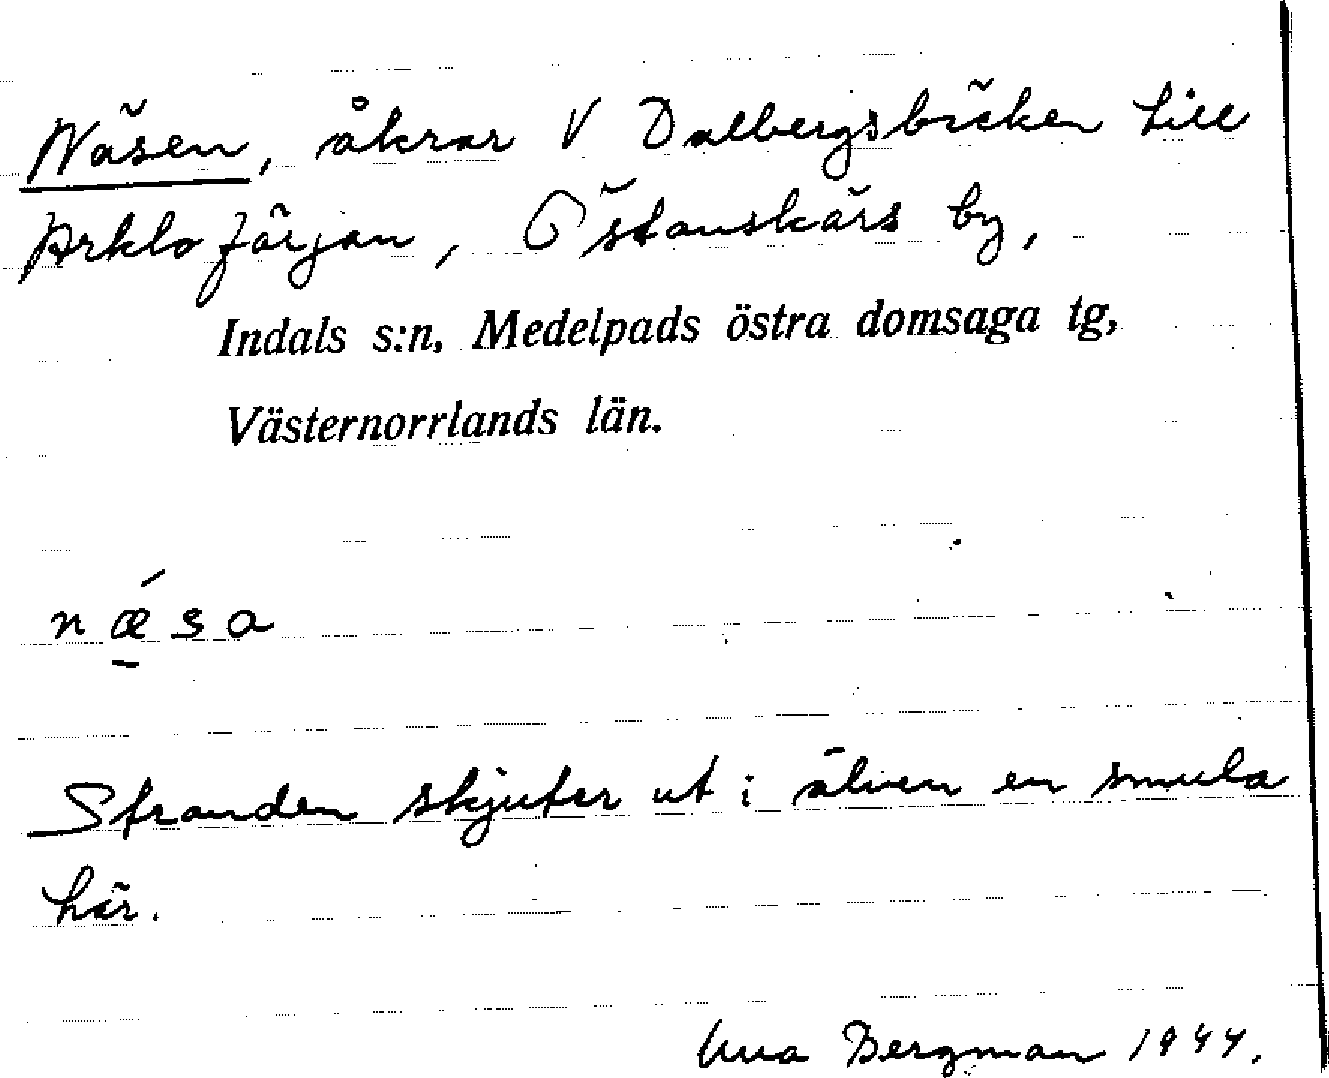 Näsen, åkrar V Dalbergsbäcken till
Arklofärjan, Östanskärs by,
Indals s:n, Medelpads östra domsaga tg,
Västernorrlands län.
nǽ̠sa
Stranden skjuter ut i älven en smula
här.
Bergman 1944.